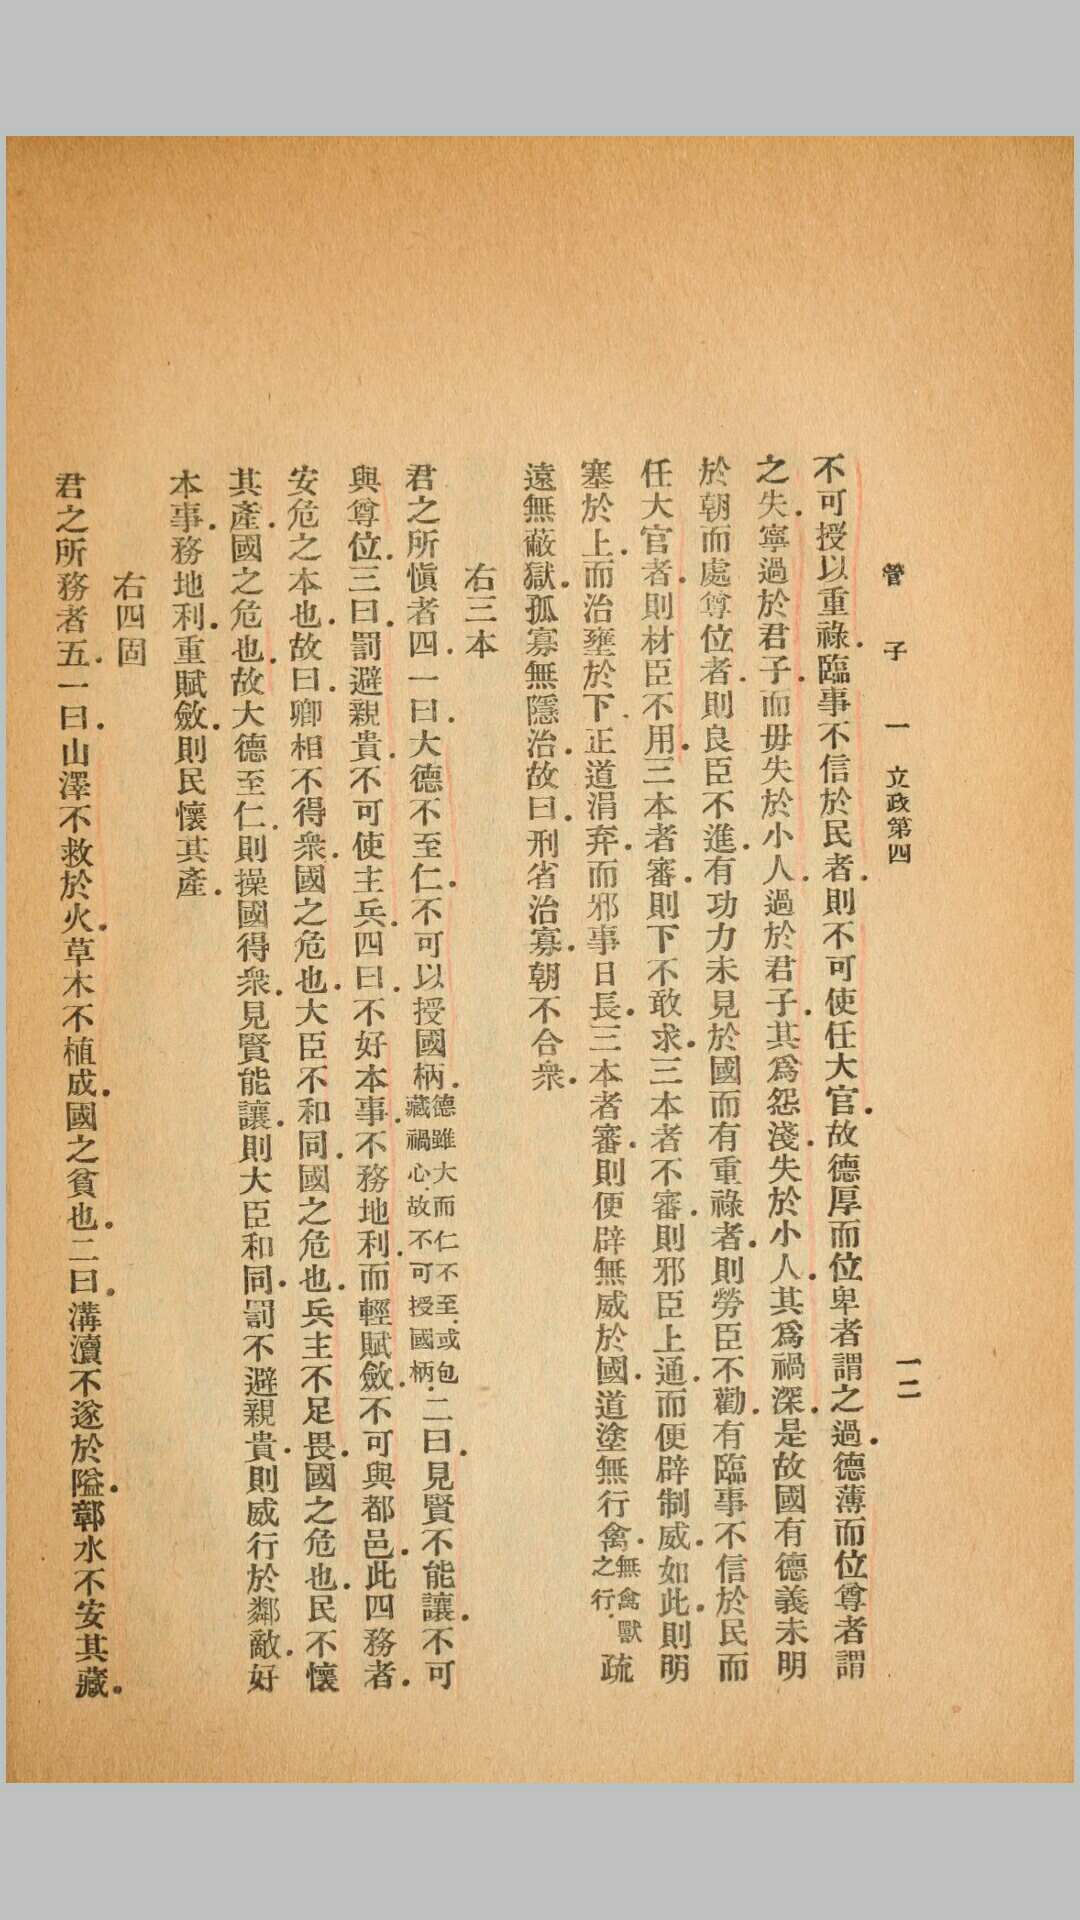 管　子　一　立政第四　一二
不可授以重祿.臨事不信於民者.則不可使任大官.故德厚而位卑者謂之過.德薄而位尊者謂
之失.寧過於君子.而毋失於小人.過於君子.其爲怨淺.失於小人.其爲禍深.是故國有德義未明
於朝而處尊位者.則良臣不進.有功力未見於國而有重祿者.則勞臣不勸.有臨事不信於民而
任大官者.則材臣不用.三本者審.則下不敢求.三本者不審.則邪臣上通.而便辟制威.如此.則明
塞於上.而治壅於下.正道涓弃.而邪事日長.三本者審.則便辟無威於國.道塗無行禽.無禽獸之行.疏
遠無蔽獄.孤寡無隱治.故曰.刑省治寡.朝不合衆.
右三本
君之所愼者四.一曰.大德不至仁.不可以授國柄.德雖大而仁不至.或包藏禍心.故不可授國柄.二曰.見賢不能讓.不可
與尊位.三曰.罰避親貴.不可使主兵.四曰.不好本事.不務地利.而輕賦斂.不可與都邑.此四務者.
安危之本也.故曰.卿相不得衆.國之危也.大臣不和同.國之危也.兵主不足畏.國之危也.民不懷
其產.國之危也.故大德至仁.則操國得衆.見賢能讓.則大臣和同.罰不避親貴.則威行於鄰敵.好
本事.務地利.重賦斂.則民懷其產.
右四固
君之所務者五.一曰.山澤不救於火.草木不植成.國之貧也.二曰.溝瀆不遂於隘.鄣水不安其藏.